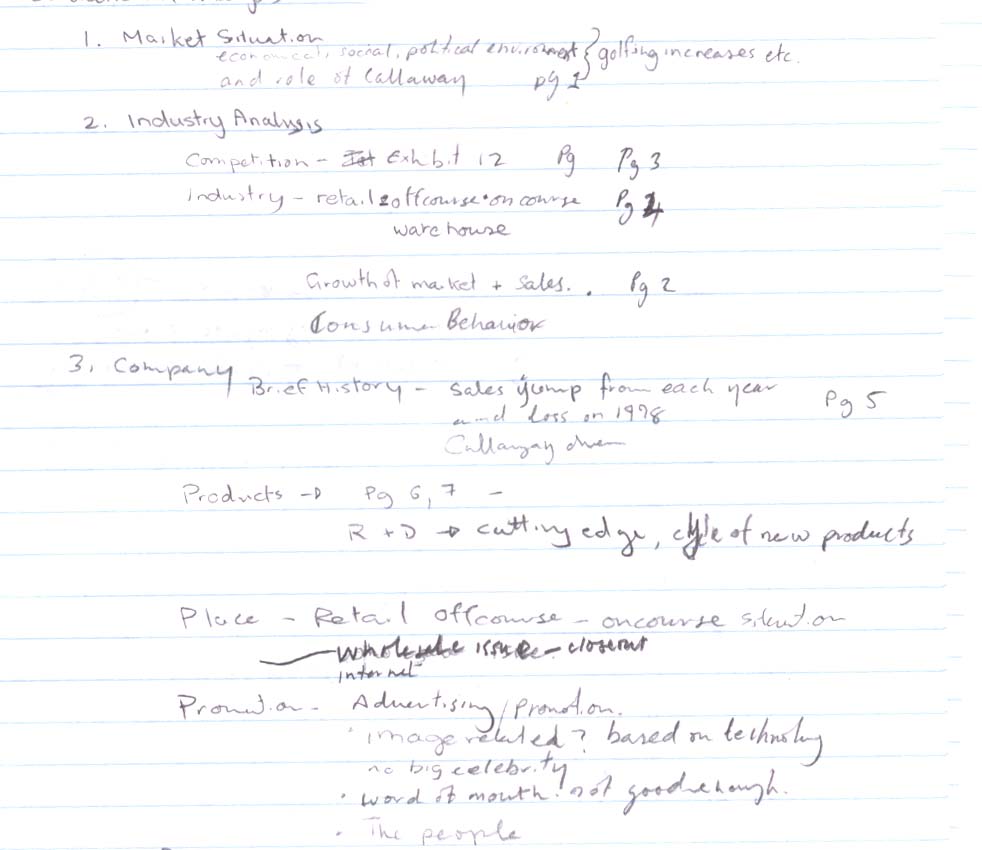 1. Market Situation
economical, social, political environment } golfing increases etc.
and role of Callaway pg 1
2. Industry Analysis
Competition - Exhibit 12 Pg Pg 3
Industry - retail offcourse • on course Pg 4
warehouse
Growth of market + sales. . Pg 2
Consumer Behavior
3. Company
Brief History - sales jump from each year Pg 5
and loss on 1998
Products → Pg 6, 7 -
R + D → cutting edge, cycle of new products
Place - Retail offcourse - oncourse situation
wholesale issue - closeout
internet
Promotion - Advertising/promotion.
• image related? based on technology
no big celebrity
• word of mouth. not good enough.
• The people